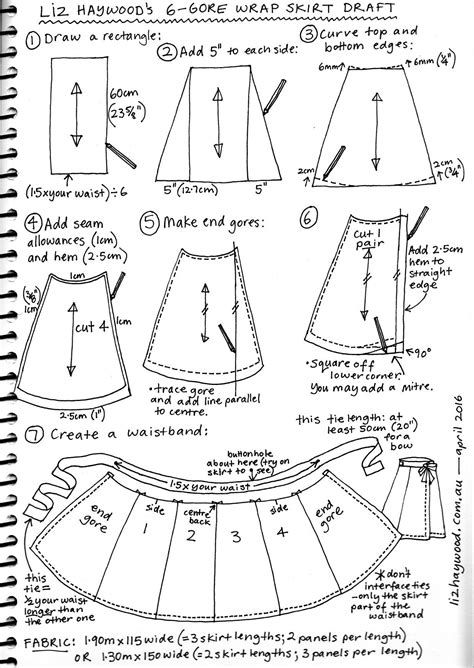 LIZ HAYWOOD'S 6-GORE WRAP SKIRT DRAFT
① Draw a rectangle:
60cm
(23⅝")
(1·5xyour waist)÷6
② Add 5" to each side:
5"(12.7cm)
5"
③ Curve top and
bottom edges:
6mm
6mm (¼")
2cm
2cm
(¾")
④ Add seam
allowances (1cm)
and hem (2·5cm)
1cm
(⅜")
1cm
1cm
cut 4
2·5cm (1")
⑤ Make end gores:
• trace gore
and add line parallel
to centre.
⑥
cut 1
pair
Add 2.5cm
hem to
straight
edge
90°
• Square off
lower corner.
You may add a Mitre.
⑦ Create a waistband:
this tie length: at
least 50cm (20")
for a
bow
buttonhole
about here (try on
skirt to see)
1·5xyour waist
end
gore
side
1
centre
back
2
3
side
4
end
gore
this
tie =
½ your waist
longer than
the other one
*don't
interface ties
-only the skirt
part of the
waistband
lizhaywood.com.au — april 2016
FABRIC: 1·90m x 115 wide (=3 skirt lengths; 2 panels per length)
OR 1·30m x 150 wide (=2 skirt lengths; 3 panels per length)